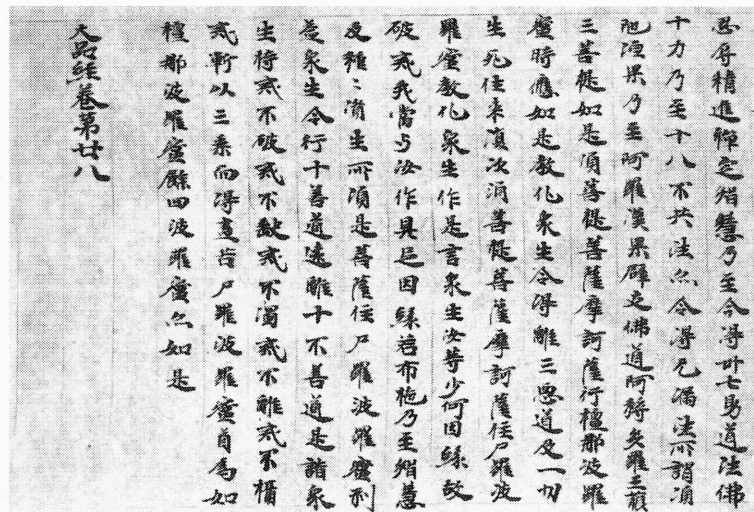 忍辱精進禪定智慧乃至令得卅七助道法佛
十力乃至十八不共法亦令得无漏法所謂須
陁洹果乃至阿羅漢果辟支佛道阿耨多羅三藐
三菩提如是須菩提菩薩摩訶薩行檀那波羅
蜜時應如是教化衆生令得離三惡道及一切
生死往來復次須菩提菩薩摩訶薩住尸羅波
羅蜜教化衆生作是言衆生汝等少何因緣故
破戒我當与汝作具足因緣若布施乃至智慧
及種〻資生所須是菩薩住尸羅波羅蜜利
益衆生令行十善道遠離十不善道是諸衆
生持戒不破戒不缺戒不濁戒不雜戒不
戒漸以三乘而得盡苦尸羅波羅蜜首爲如
檀那波羅蜜餘四波羅蜜亦如是
大品經卷第廿八